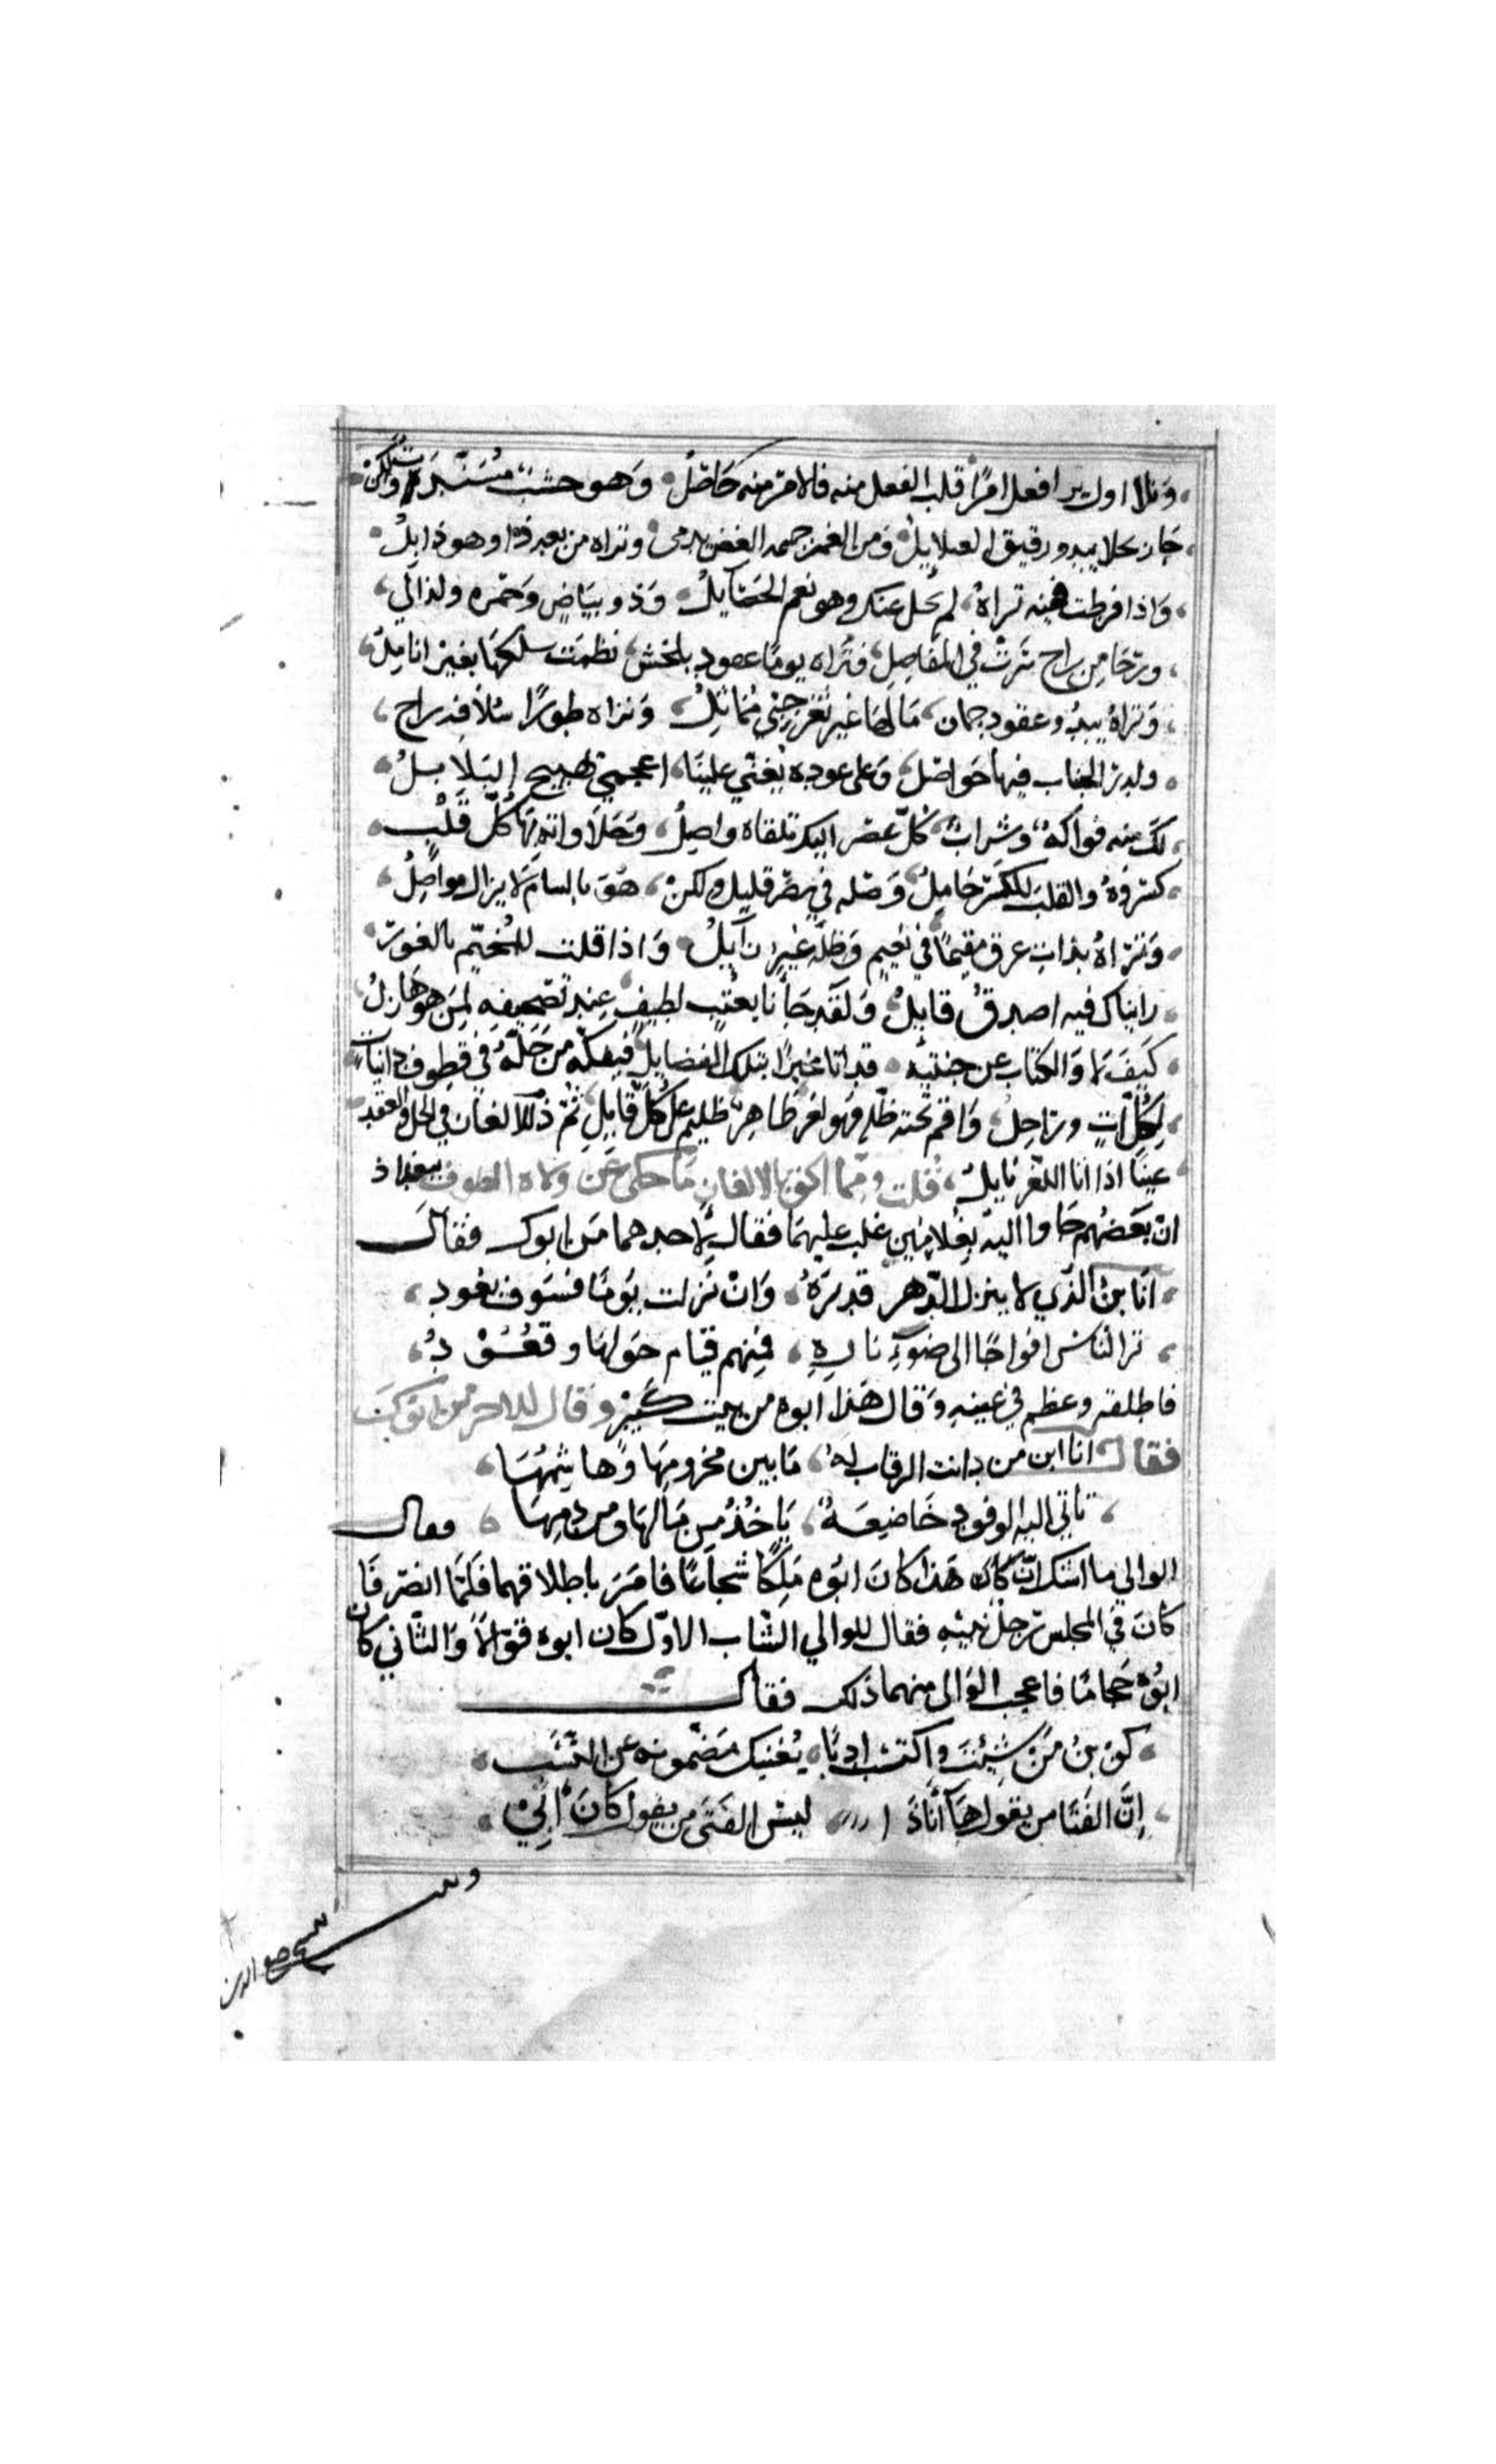 وتلا اول يرا فعل امرًا قلب الفعل منه فالامر منه حاصل وهو خشب مسندة ولكن
جاز حلا يبدو رقيق الغلايل ومن الغمز جسمه الغض يدمى وتراه من بعد ذا وهو ذابل
واذا فرطت فيه تراه لم يحل عنك وهو نعم الخصايل وذو بياض وحمره ولذا لي
وترحا من راح سرت في المفاصل فتراه يوما عقود بلخش نظمت سلكها بغير انامل
وتراه يبدو عقود جمان ما لها غير ثغر حبي مماثل وتراه طورًا سلافه راح
ولدر الحباب فيها حواصل وعلى عوده يغني علينا اعجمي يهيج البلابل
لك منه فواكه وشراب كل عصر اليك تلقاه واصل وحلا وانه بها كل قلب
كسروه والقلب للكسر حامل وصله في مصر قليل ولكن هو بالشام لا يزال مواصل
وتراه بذات عرق مقيمًا في نعيم وظله غير زايل واذا قلت للمخيم بالغور
رايناك فيه اصدق قايل ولقد جأنا بعتب لطيف عند تصحيفه لمن هو هازل
كيف لا والكتاب عن جنتيه قد اتا مخبرًا بتلك الفضايل فيفكه من حله في قطوف دانيات
لكل آت وراحل واقم تحته ظله فهو لغز ظاهر ظليم على كل قايل ثم ذلل الغاز في الحل والعقد
عينا اذا انا اللغز نايل قلت ومما اكفو بالالغاز ما حكى عن ولاه الطوف ببغداذ
ان بعضهم جاوا اليه بغلامين غلب عليهما فقال لاحدهما من ابوك فقال
انا بن الذي لا ينزل الدهر قدره وان نزلت يومًا فسوف تعود
ترا الناس افواجًا الى ضوء ناره فمنهم قيام حولها وقعود
فاطلقه وعظم في عينه وقال هذا ابوه من بيت كبير وقال للاخر من ابوك
فقال انا ابن من دانت الرقاب له ما بين مخزومها وهاشمها
تاتي اليه الوفود خاضعة ياخذ من مالها ومن دمها فقال
الوالي ما اشك ان كان هذا كان ابوه ملكًا شجاعًا فامر باطلاقهما فلما انصرفا
كان في المجلس رجل نبيه فقال للوالي الشاب الاول كان ابوه فوالًا والثاني كان
ابوه حجامًا فاعجب الوالي منهما ذلك فقال
كن بن من شئت واكتسب ادبا يغنيك مضمونه عن النسب
إن الفتا من يقول ها أنا ذا ليس الفتى من يقول كان ابي